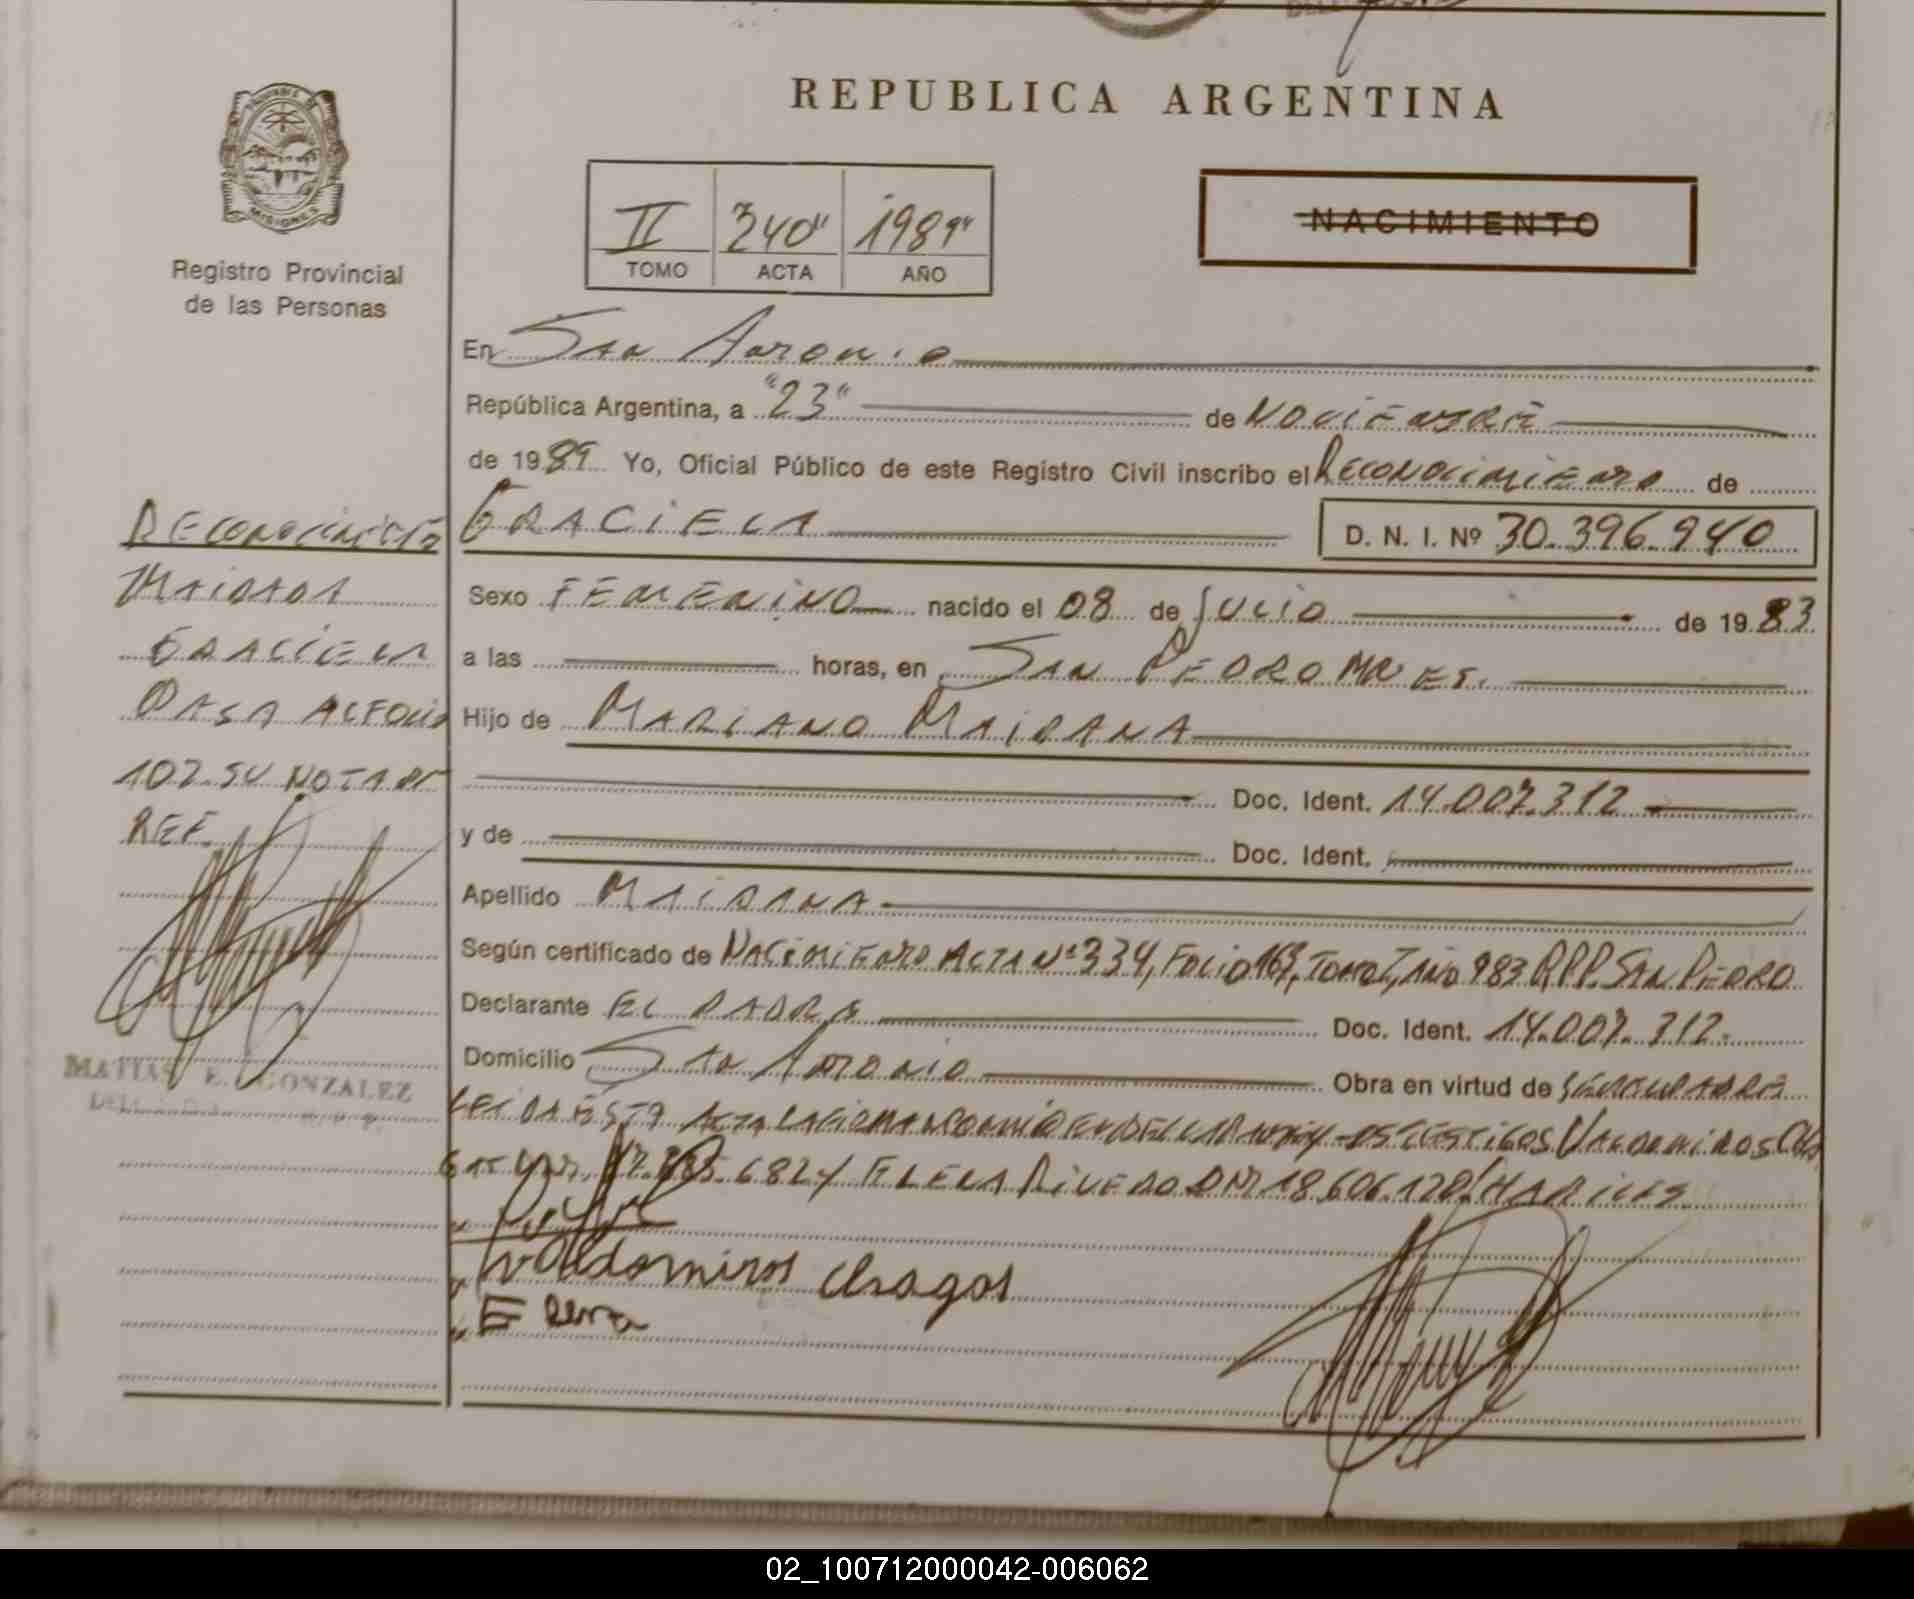 REPUBLICA ARGENTINA
PROVINCIA DE
MISIONES
Registro Provincial
de las Personas
II 240" 1989"
TOMO ACTA AÑO
NACIMIENTO
En San Antonio
República Argentina, a "23" de NOVIEMBRE
de 1989 Yo, Oficial Público de este Registro Civil inscribo el RECONOCIMIENTO de
GRACIELA D. N. I. Nº 30.396.940
Sexo FEMENINO nacido el 08 de JULIO de 1983
a las horas, en SAN PEDRO MNES.
Hijo de MARIANO MAIDANA
Doc. Ident. 14.007.312
y de Doc. Ident.
Apellido MAIDANA
Según certificado de NACIMIENTO ACTA Nº 334, FOLIO 169, TOMO I, AÑO 983 R.P.P. SAN PEDRO
Declarante EL PADRE Doc. Ident. 14.007.312.
Domicilio San Antonio Obra en virtud de
LEIDA ESTA ACTA LA FIRMAN CONMIGO EL DECLARANTE TESTIGOS
682 Y ELENA RIVERO DNI 18.606.128/HABILES
Valdomiros Chagas
Elena
RECONOCIMIENTO
MAIDANA
GRACIELA
PASA AL FOLIO
102 SU NOTA DE
REF.
MATIAS E. GONZALEZ
02_100712000042-006062